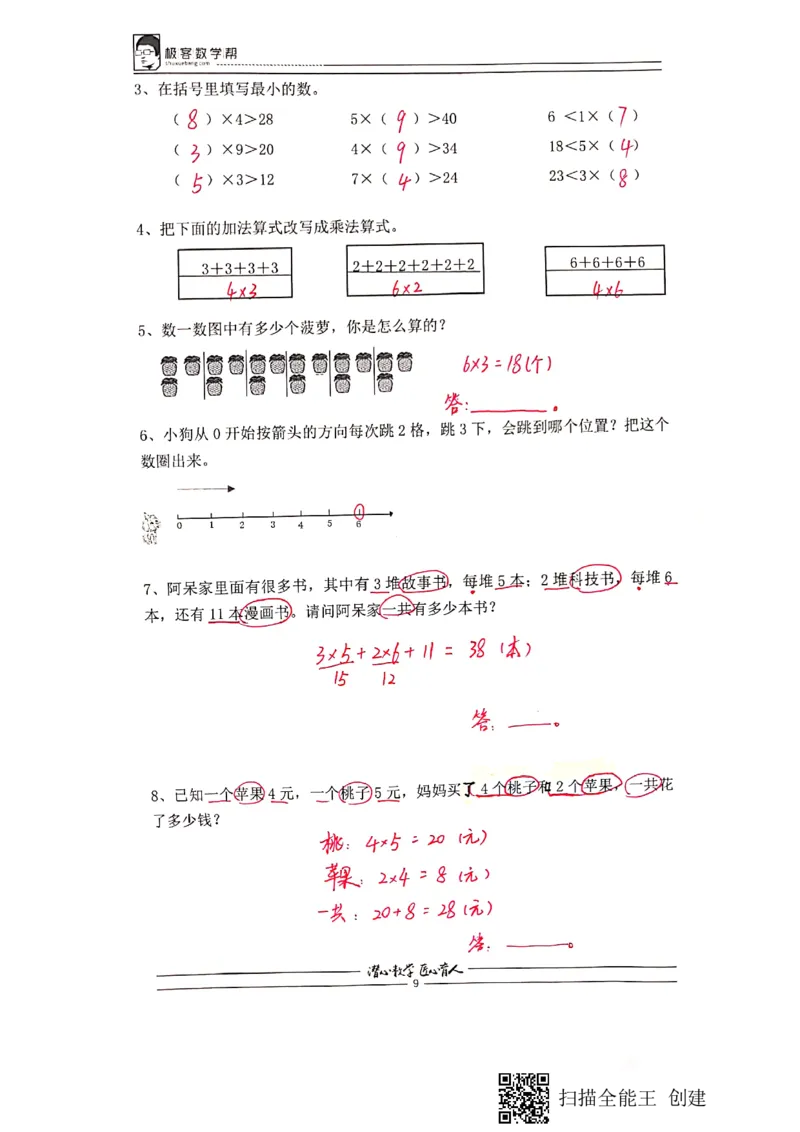 极客数学帮
shuxuebang.com
3、在括号里填写最小的数。
( 8 )×4>28 5×( 9 )>40 6 <1×( 7 )
( 3 )×9>20 4×( 9 )>34 18<5×( 4 )
( 5 )×3>12 7×( 4 )>24 23<3×( 8 )
4、把下面的加法算式改写成乘法算式。
3+3+3+3 2+2+2+2+2+2 6+6+6+6
4×3 6×2 4×6
5、数一数图中有多少个菠萝，你是怎么算的？
6×3=18(个)
答:______。
6、小狗从 0 开始按箭头的方向每次跳 2 格，跳 3 下，会跳到哪个位置？把这个
数圈出来。
0 1 2 3 4 5 6
7、阿呆家里面有很多书，其中有 3 堆故事书，每堆 5 本；2 堆科技书，每堆 6
本，还有 11 本漫画书。请问阿呆家一共有多少本书？
3×5+2×6+11=38(本)
15 12
答:____。
8、已知一个苹果 4 元，一个桃子 5 元，妈妈买了 4 个桃子和 2 个苹果，一共花
了多少钱？
桃：4×5=20(元)
苹果：2×4=8(元)
一共：20+8=28(元)
答:______。
潜心数学 匠心育人
9
扫描全能王 创建